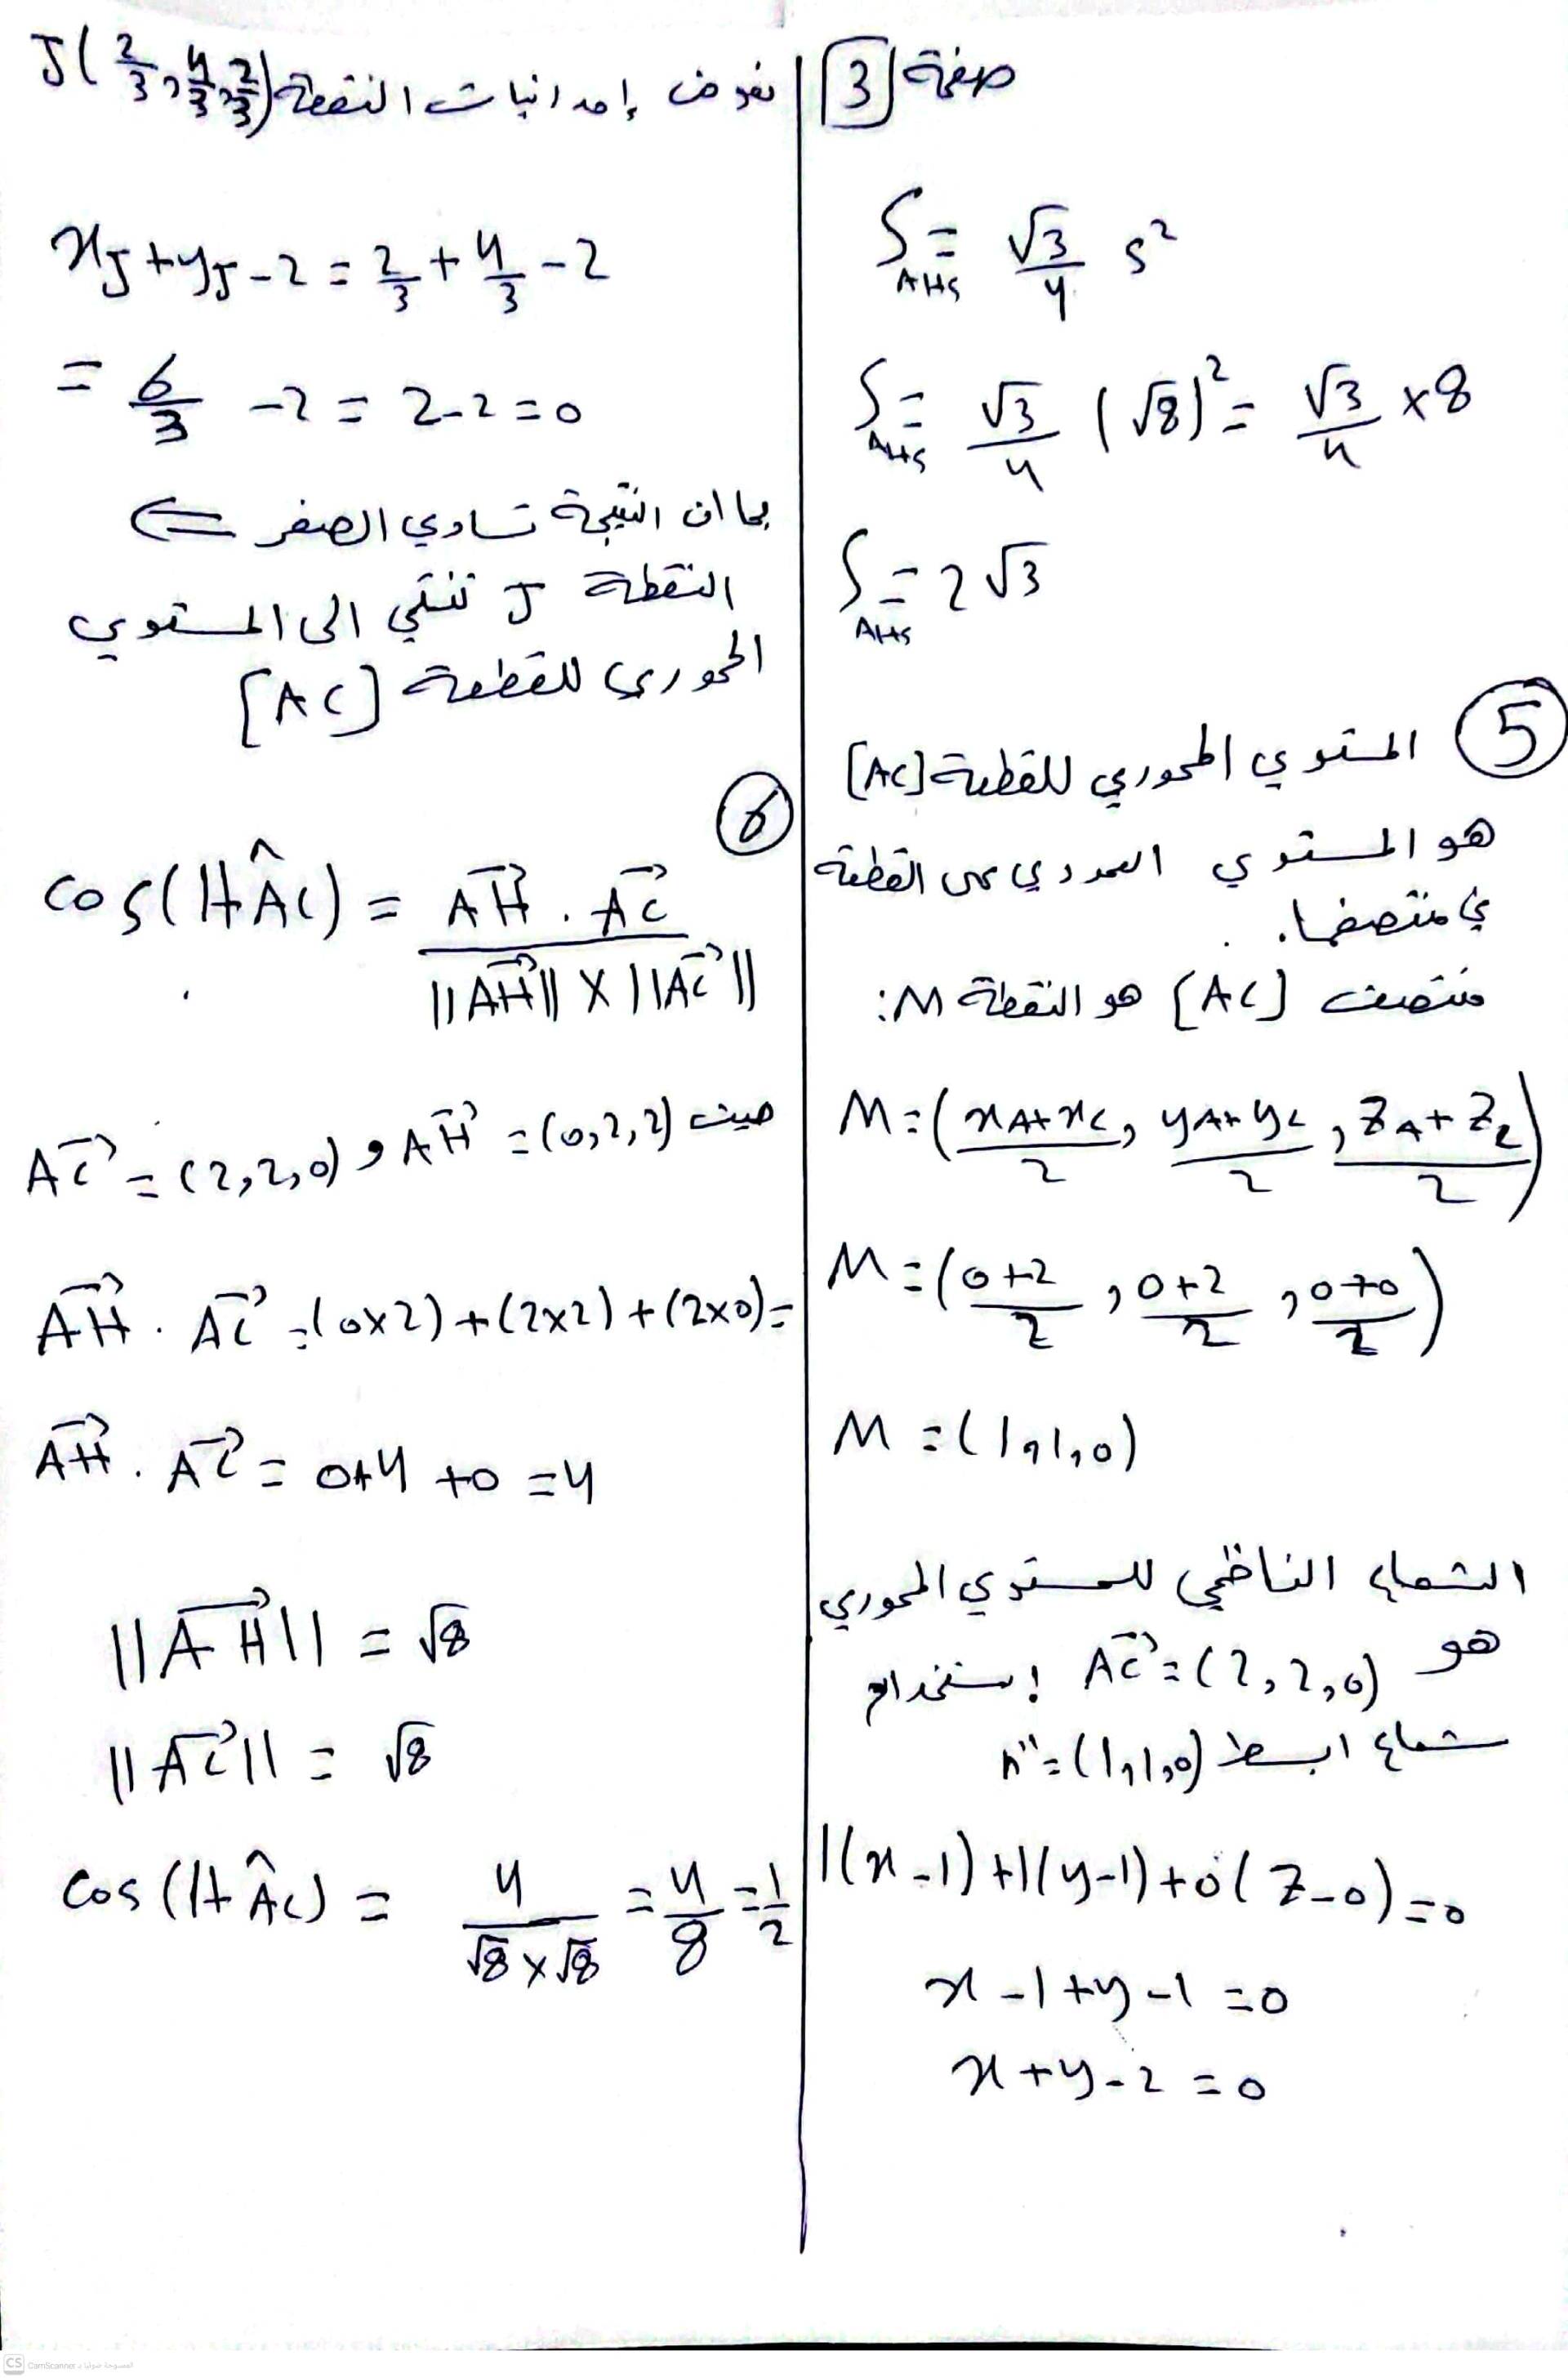 صفحة 3
S_AHS = √3/4 s²
S_AHS = √3/4 (√8)² = √3/4 × 8
S_AHS = 2√3
⑤ المستوي المحوري للقطعة [AC]
هو المستوي العمودي على القطعة
في منتصفها.
منتصف [AC] هو النقطة M:
M = ((x_A + x_C)/2 , (y_A + y_C)/2 , (z_A + z_2)/2)
M = ((0+2)/2 , (0+2)/2 , (0+0)/2)
M = (1,1,0)
الشعاع الناظمي للمستوي المحوري
هو AC⃗ = (2,2,0) إستخدام
شعاع ابسط n" = (1,1,0)
1(x-1) + 1(y-1) + 0(z-0) = 0
x - 1 + y - 1 = 0
x + y - 2 = 0
نعوض إحداثيات النقطة J(2/3, 4/3, 2/3)
x_J + y_J - 2 = 2/3 + 4/3 - 2
= 6/3 - 2 = 2 - 2 = 0
بما ان النتيجة تساوي الصفر ⇐
النقطة J تنتمي الى المستوي
المحوري للقطعة [AC]
⑥
cos(HÂC) = (AH⃗ . AC⃗)/(||AH⃗|| × ||AC⃗||)
حيث AH⃗ = (0,2,2) و AC⃗ = (2,2,0)
AH⃗ . AC⃗ = (0×2) + (2×2) + (2×0) =
AH⃗ . AC⃗ = 0+4+0 = 4
||AH⃗|| = √8
||AC⃗|| = √8
cos(HÂC) = 4/(√8 × √8) = 4/8 = 1/2
CS CamScanner الممسوحة ضوئيا بـ